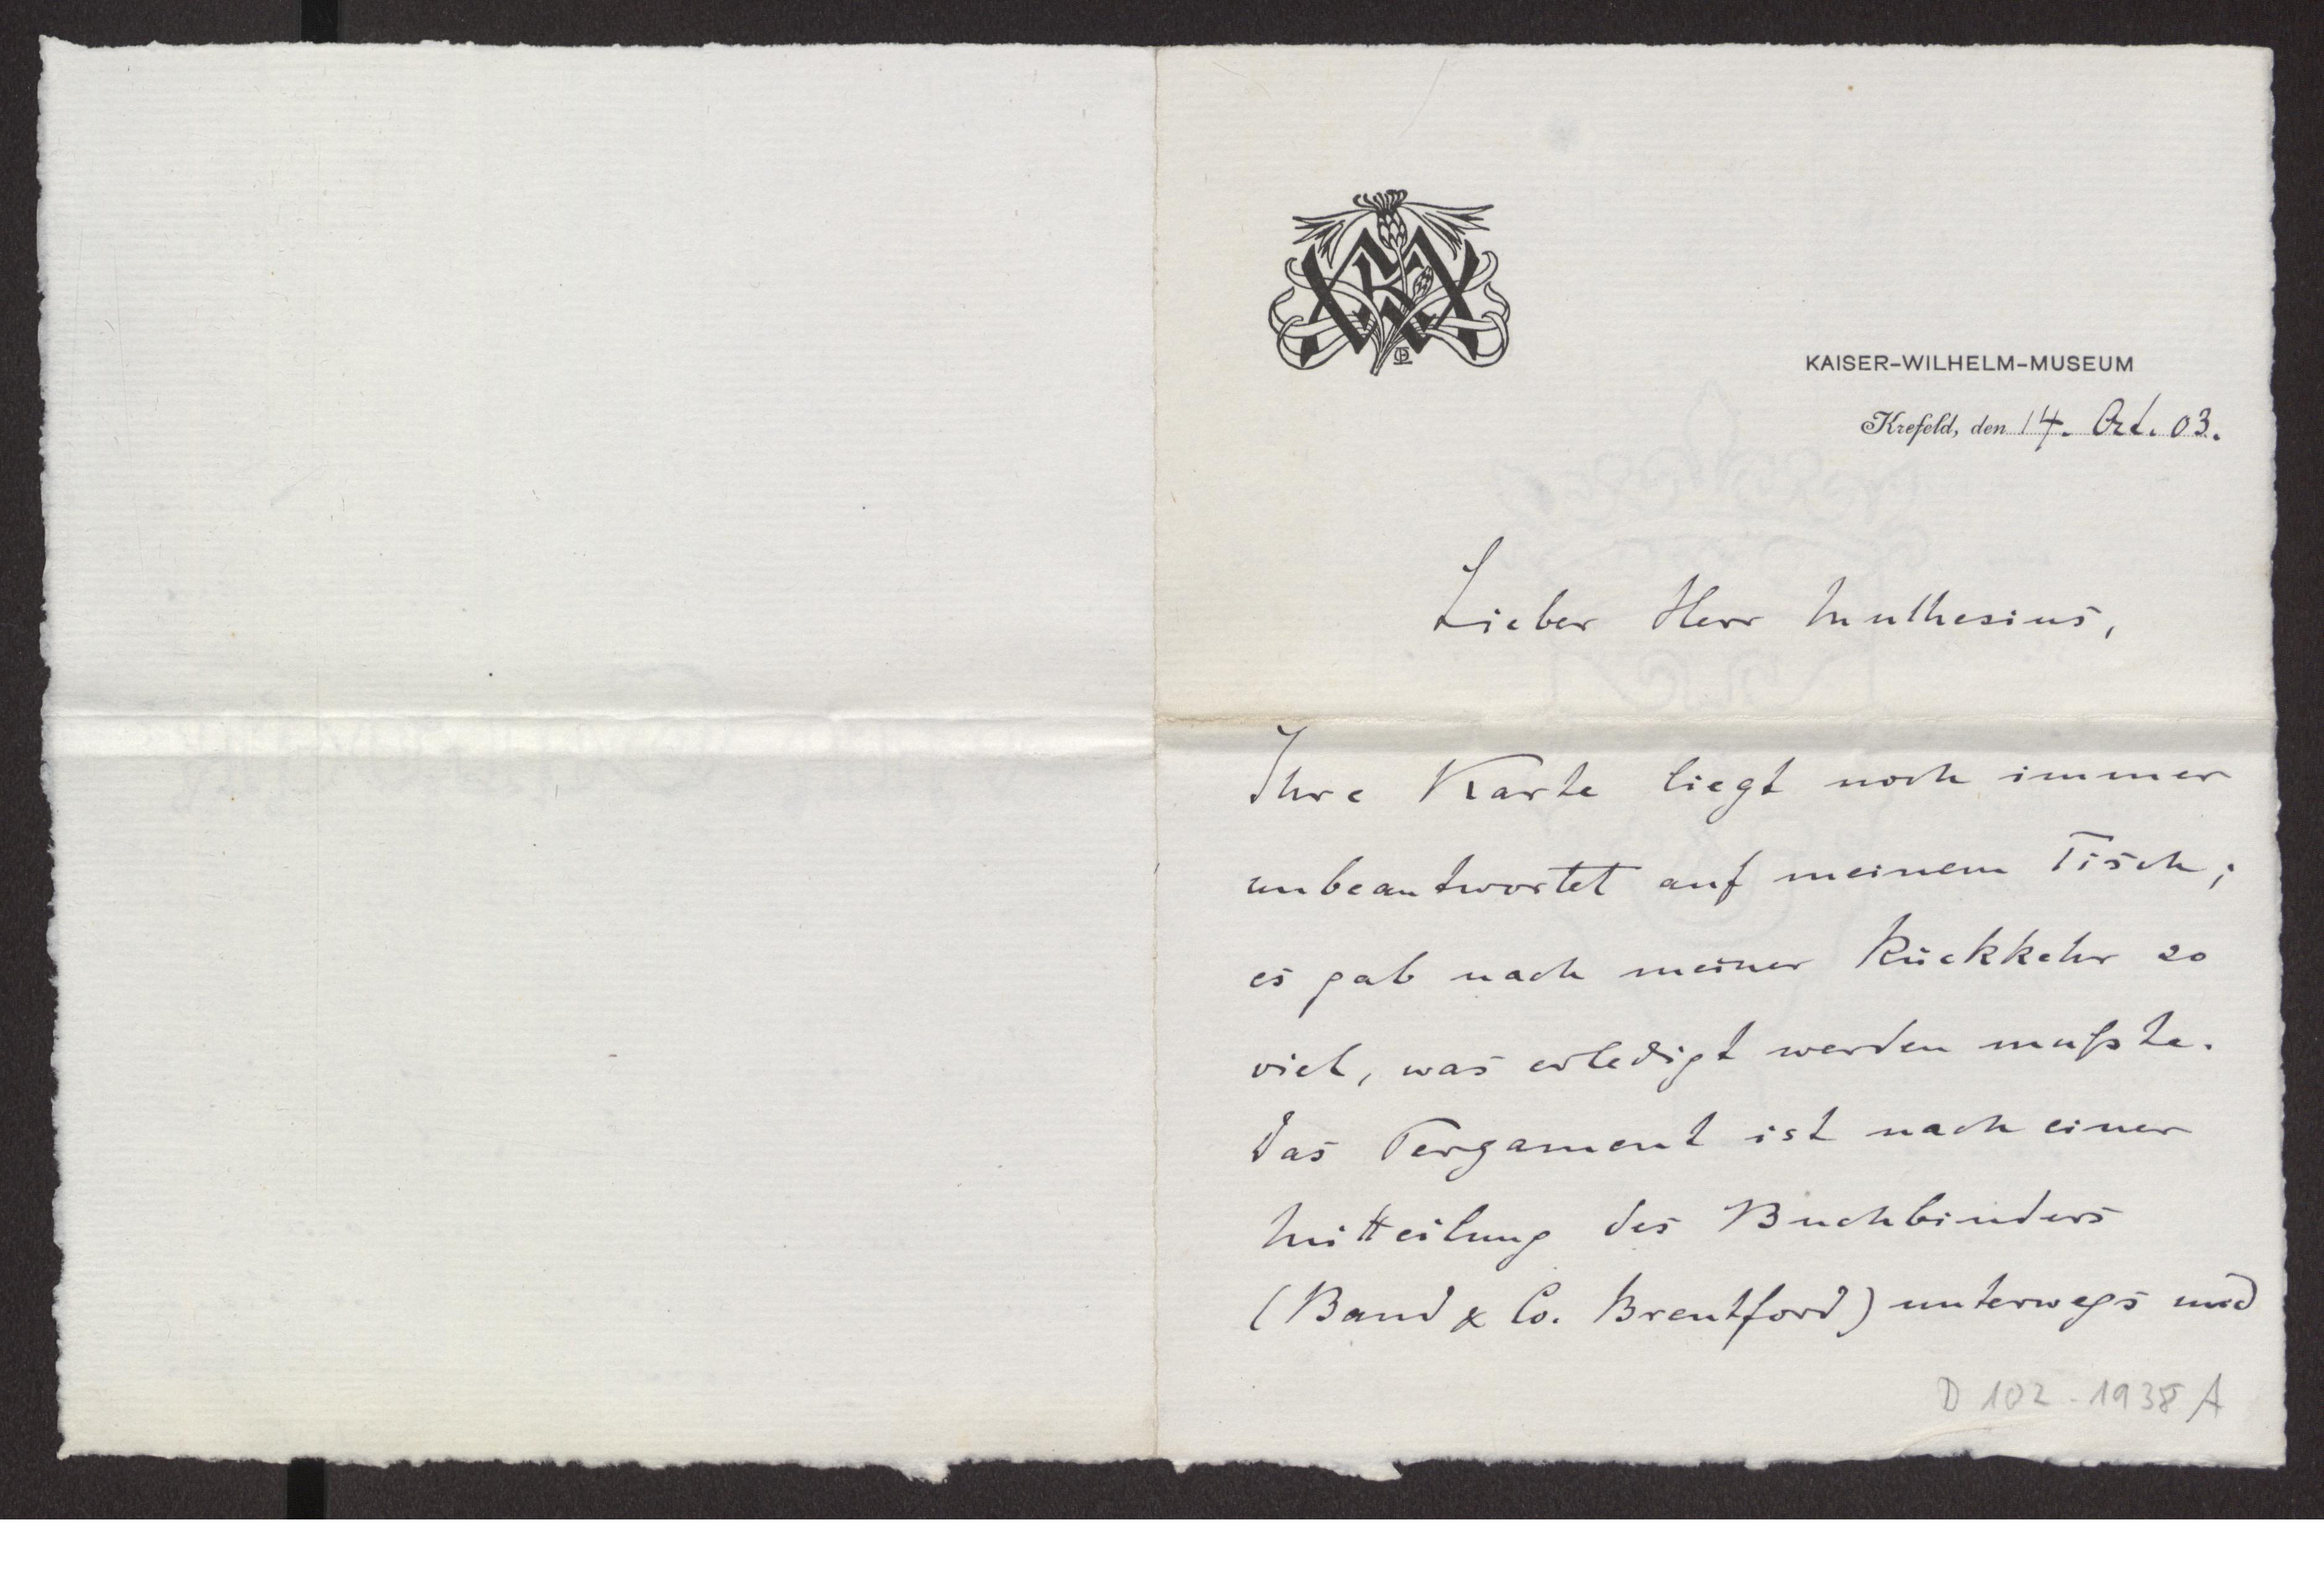 KAISER-WILHELM-MUSEUM
Krefeld, den 14. Oct. 03.
Lieber Herr Muthesius,
Ihre Karte liegt noch immer
unbeantwortet auf meinem Tisch;
es gab nach meiner Rückkehr so
viel, was erledigt werden mußte.
Das Pergament ist nach einer
Mitteilung des Buchbinders
(Band & Co. Brentford) unterwegs und
D 102-1938 A